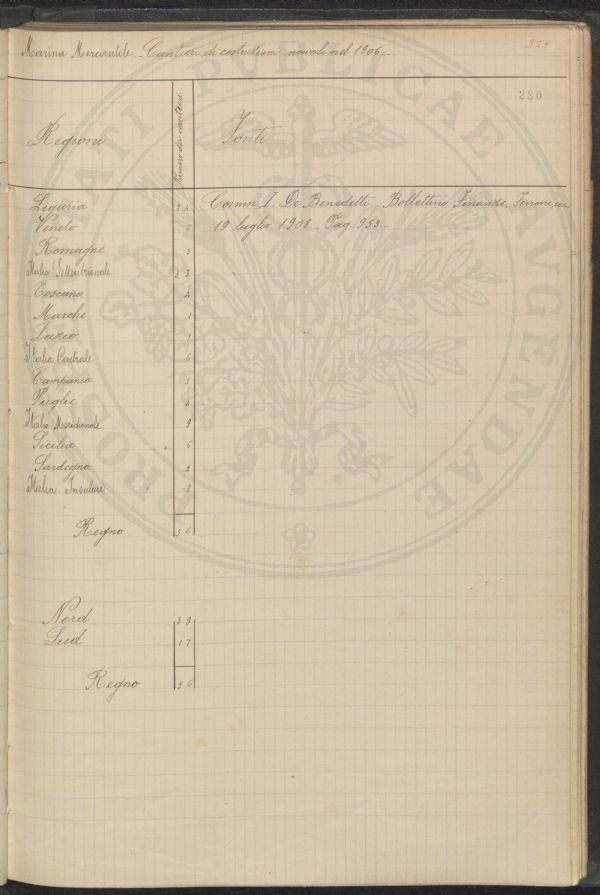 329
Marina Mercantile - Cantieri di costruzioni navali nel 1906 -
280
Regioni
Numero dei cantieri
Fonti
Liguria 24 Comm. I. De Benedetti - Bollettino Finanze, Ferrovie,
Veneto 6 19 luglio 1908 - Pag. 953 -
Romagne 3
Italia Settentrionale 33
Toscana 4
Marche 1
Lazio 1
Italia Centrale 6
Campania 5
Puglie 4
Italia Meridionale 9
Sicilia 6
Sardegna 2
Italia Insulare 8
Regno 56
Nord 39
Sud 17
Regno 56
PUBLICAE AUGENDAE